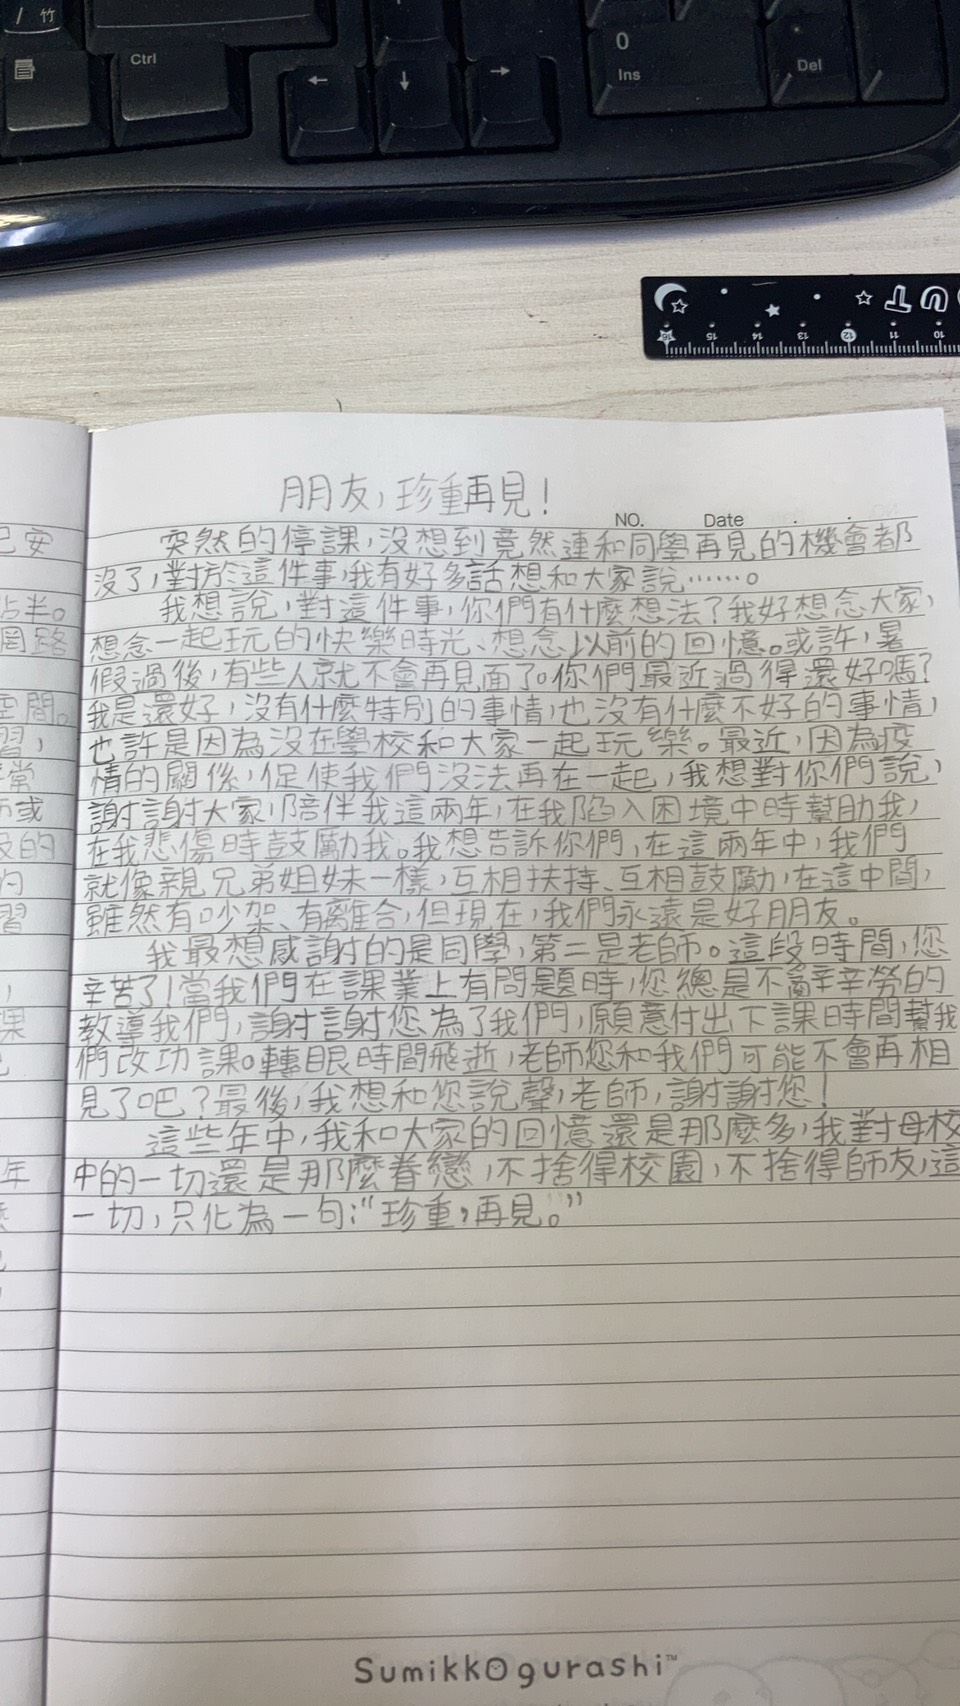 竹
Ctrl
←
↓
→
0
Ins
Del
16 15 14 13 12 11 10
朋友,珍重再見!
NO. Date
突然的停課,沒想到竟然連和同學再見的機會都
沒了,對於這件事,我有好多話想和大家說……。
我想說,對這件事,你們有什麼想法?我好想念大家,
想念一起玩的快樂時光、想念以前的回憶。或許,暑
假過後,有些人就不會再見面了。你們最近過得還好嗎?
我是還好,沒有什麼特別的事情,也沒有什麼不好的事情,
也許是因為沒在學校和大家一起玩樂。最近,因為疫
情的關係,促使我們沒法再在一起,我想對你們說,
謝謝大家,陪伴我這兩年,在我陷入困境中時幫助我,
在我悲傷時鼓勵我。我想告訴你們,在這兩年中,我們
就像親兄弟姐妹一樣,互相扶持、互相鼓勵,在這中間,
雖然有吵架、有離合,但現在,我們永遠是好朋友。
我最想感謝的是同學,第二是老師。這段時間,您
辛苦了!當我們在課業上有問題時,您總是不辭辛勞的
教導我們,謝謝您為了我們,願意付出下課時間幫我
們改功課。轉眼時間飛逝,老師您和我們可能不會再相
見了吧?最後,我想和您說聲,老師,謝謝您!
這些年中,我和大家的回憶還是那麼多,我對母校
中的一切還是那麼眷戀,不捨得校園,不捨得師友,這
一切,只化為一句:“珍重,再見。”
已安
點半。
網路
空間。
習,
常
師或
的
習
,
課
年
Sumikkogurashi™